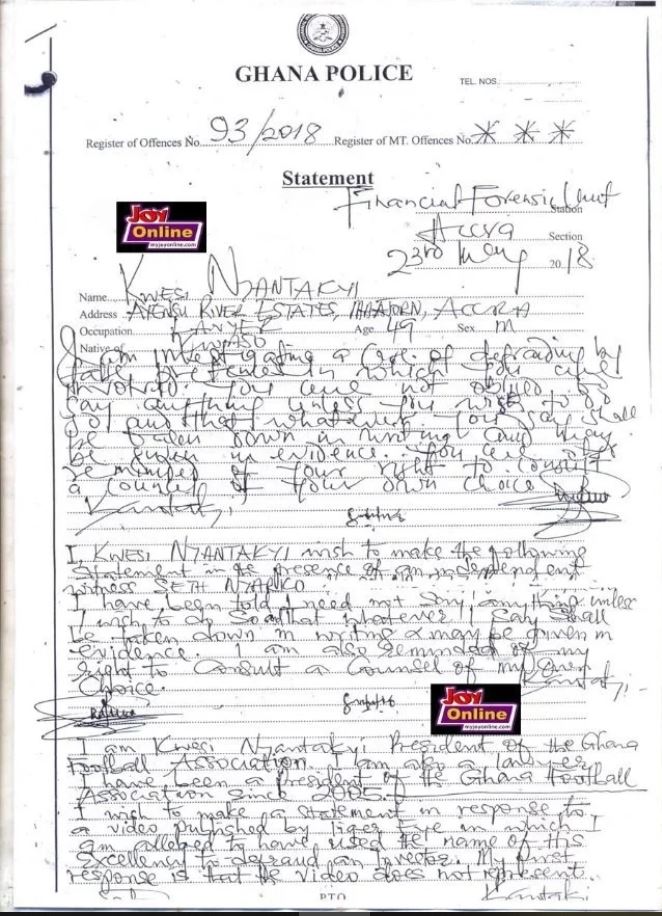 GHANA POLICE
TEL. NOS.:
Register of Offences No. 93/2018 Register of MT. Offences No. * * *
Statement
Financial Forensic Unit Station
JOY Online
myjoyonline.com
Accra Section
23rd May 2018
Name Kwesi Nyantakyi
Address Ayensu River Estates, Accra
Occupation Lawyer Age 49 Sex M
Native of
I am investigating a Case of defrauding by
false pretences in which you are
involved. You are not obliged to
say anything unless you wish to do
so and that whatever you say shall
be taken down in writing and may
be given in evidence. You are also
reminded of your right to consult
a Counsel of your own choice
I, KWESI NYANTAKYI wish to make the following
statement in the presence of an independent
witness SETH NYARKO
I have been told I need not say anything unless
I wish to do so & that whatever I say shall
be taken down in writing & may be given in
evidence. I am also reminded of my
right to consult a counsel of my own
choice.
JOY Online
myjoyonline.com
I am Kwesi Nyantakyi President of the Ghana
Football Association. I am also a lawyer
I have been a President of the Ghana Football
Association since 2005.
I wish to make a statement in response to
a video published by Tiger Eye in which I
am alleged to have used the name of His
Excellency to defraud an Investor. My first
response is that the video does not represent
PTO